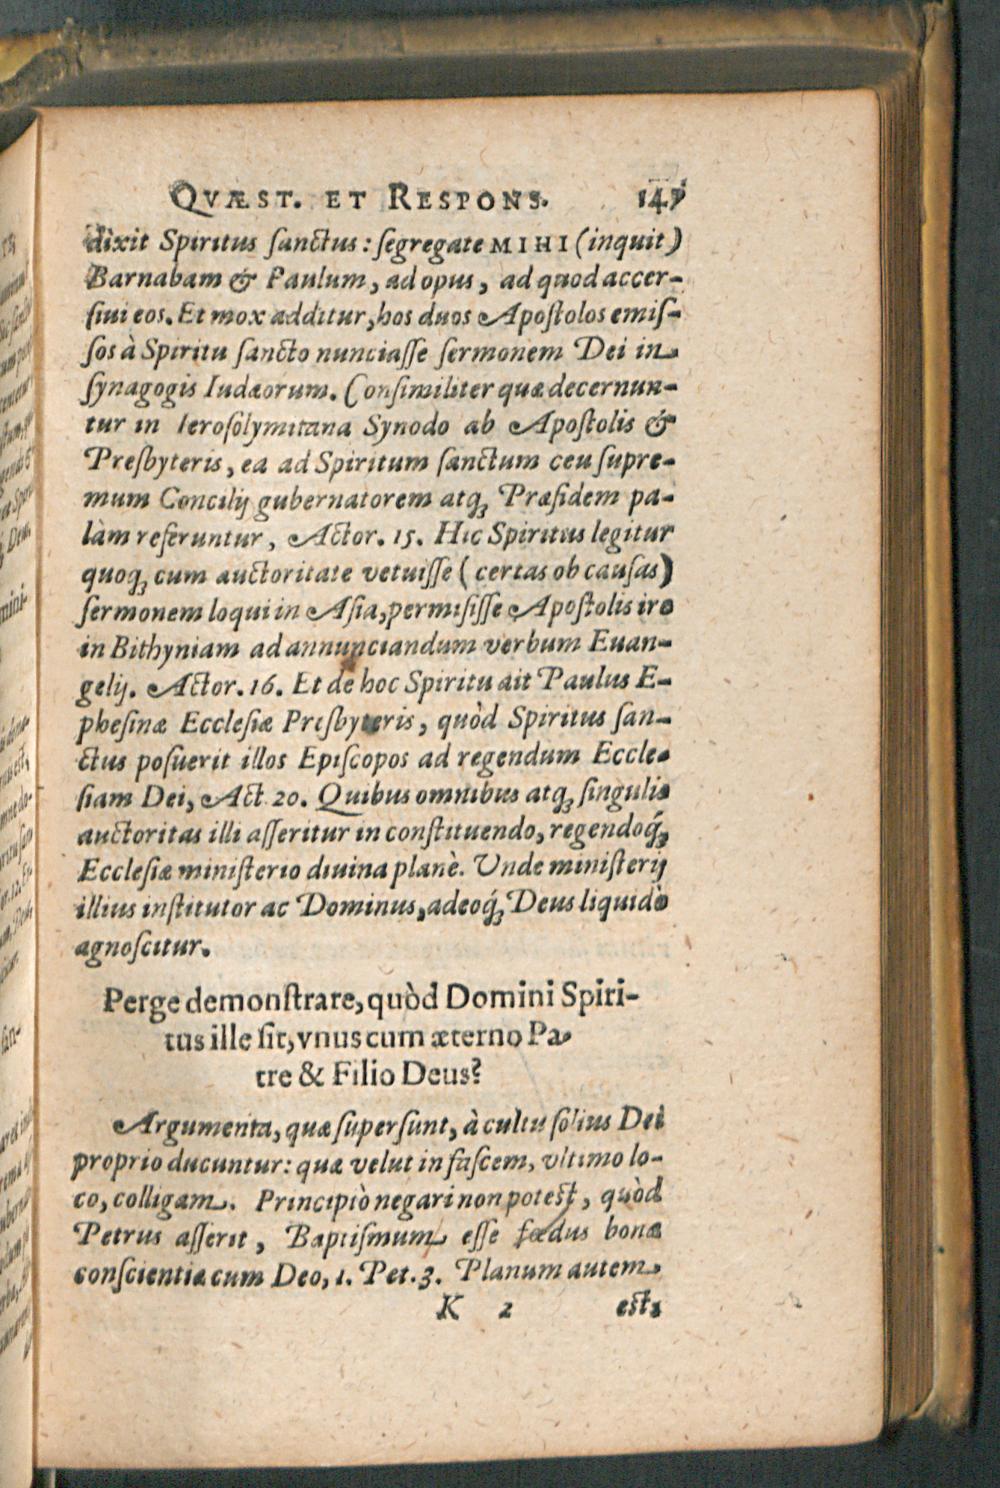 QVÆST. ET RESPONS. 147
dixit Spiritus ſanctus: ſegregate MIHI (inquit)
Barnabam & Paulum, ad opus, ad quod accer-
ſiui eos. Et mox additur, hos duos Apoſtolos emiſ-
ſos à Spiritu ſancto nunciaſſe ſermonem Dei in
ſynagogis Iudæorum. Conſimiliter quæ decernun-
tur in Ieroſolymitana Synodo ab Apoſtolis &
Preſbyteris, ea ad Spiritum ſanctum ceu ſupre-
mum Concilij gubernatorem atq; Præſidem pa-
làm referuntur, Actor. 15. Hic Spiritus legitur
quoq; cum auctoritate vetuiſſe (certas ob cauſas)
ſermonem loqui in Aſia, permiſiſſe Apoſtolis ire
in Bithyniam ad annunciandum verbum Euan-
gelij. Actor. 16. Et de hoc Spiritu ait Paulus E-
pheſinæ Eccleſiæ Preſbyteris, quòd Spiritus ſan-
ctus poſuerit illos Epiſcopos ad regendum Eccle-
ſiam Dei, Act. 20. Quibus omnibus atq; ſingulis
auctoritas illi aſſeritur in conſtituendo, regendoq́;
Eccleſiæ miniſterio diuina planè. Unde miniſterij
illius inſtitutor ac Dominus, adeoq́; Deus liquidò
agnoſcitur.
Perge demonſtrare, quòd Domini Spiri-
tus ille ſit, vnus cum æterno Pa-
tre & Filio Deus?
Argumenta, quæ ſuperſunt, à cultu ſolius Dei
proprio ducuntur: quæ velut in faſcem, vltimo lo-
co, colligam. Principiò negari non poteſt, quòd
Petrus aſſerit, Baptiſmum eſſe fœdus bonæ
conſcientiæ cum Deo, 1. Pet. 3. Planum autem
K 2 eſt,